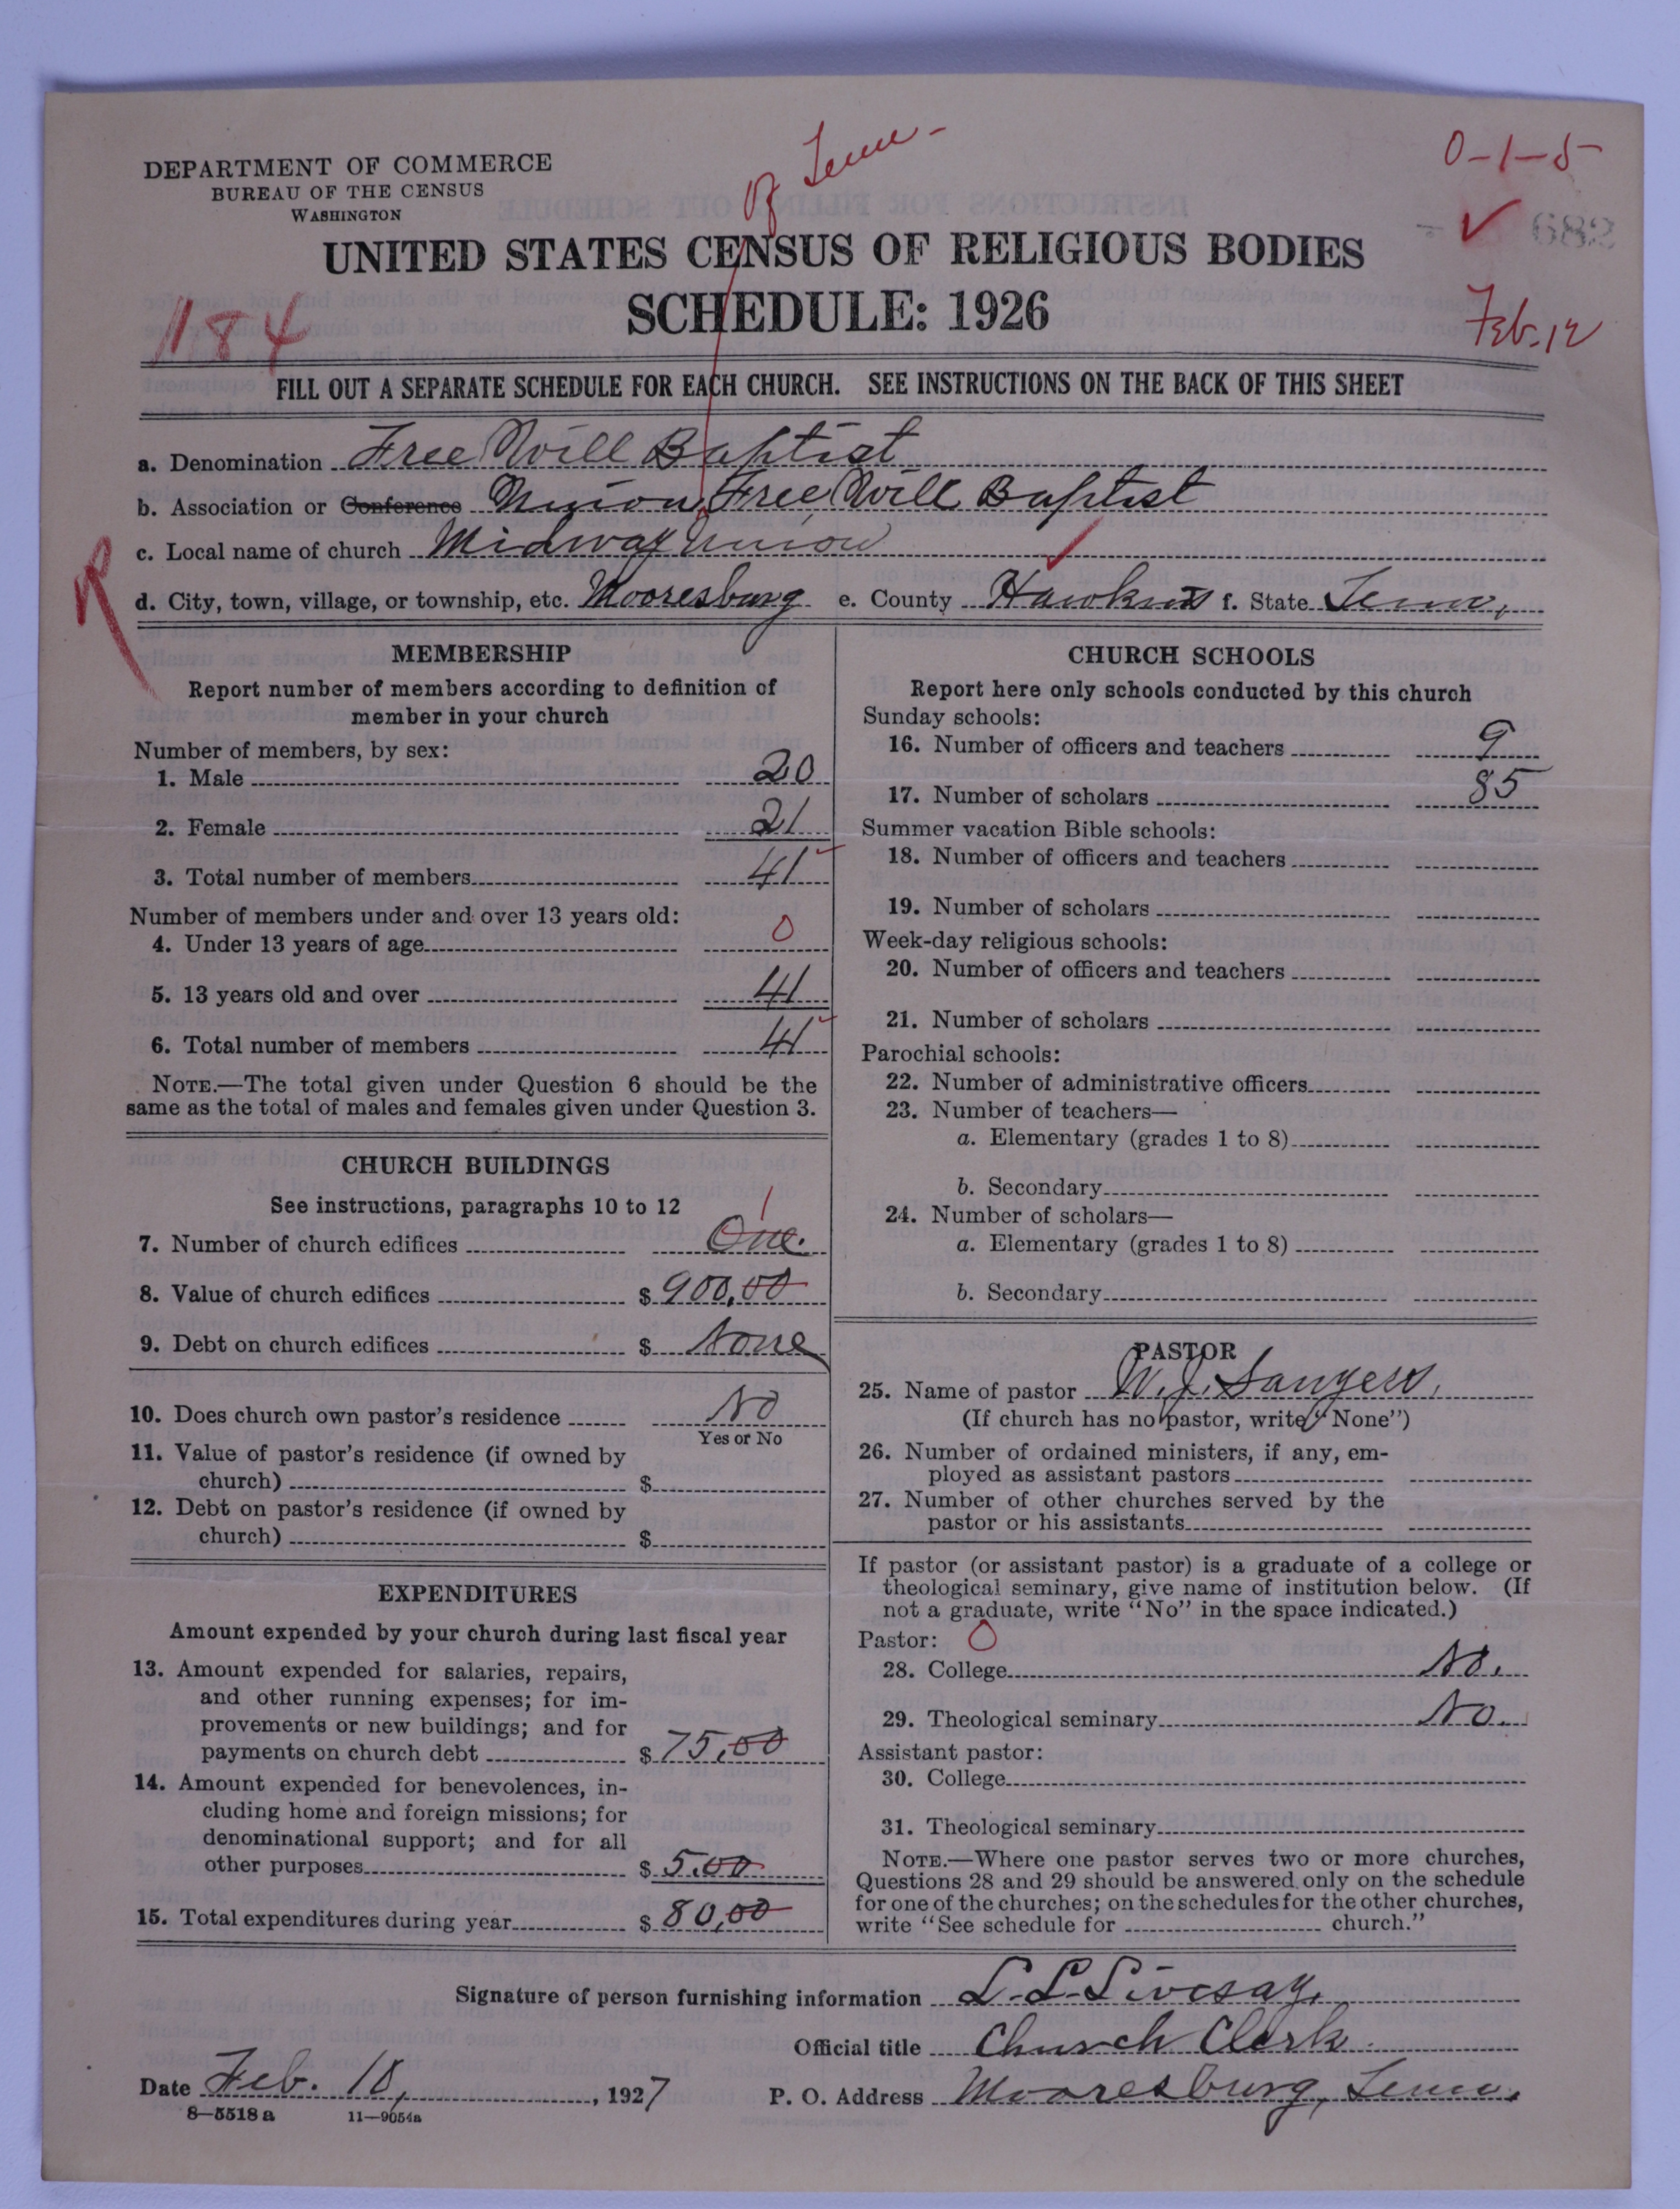 DEPARTMENT OF COMMERCE
BUREAU OF THE CENSUS
WASHINGTON
of Tenn-
0-1-5-
✓ 682
UNITED STATES CENSUS OF RELIGIOUS BODIES
SCHEDULE: 1926
1184
Feb. 12
FILL OUT A SEPARATE SCHEDULE FOR EACH CHURCH. SEE INSTRUCTIONS ON THE BACK OF THIS SHEET
a. Denomination Free Will Baptist
b. Association or Conference Union Free Will Baptist
c. Local name of church Midway Union
R
d. City, town, village, or township, etc. Mooresburg e. County Hawkins f. State Tenn.
MEMBERSHIP
Report number of members according to definition of
member in your church
Number of members, by sex:
1. Male 20
2. Female 21
3. Total number of members 41
Number of members under and over 13 years old:
4. Under 13 years of age 0
5. 13 years old and over 41
6. Total number of members 41
NOTE.—The total given under Question 6 should be the
same as the total of males and females given under Question 3.
CHURCH BUILDINGS
See instructions, paragraphs 10 to 12
1
7. Number of church edifices One.
8. Value of church edifices $ 900.00
9. Debt on church edifices $ None
10. Does church own pastor's residence No
Yes or No
11. Value of pastor's residence (if owned by
church) $
12. Debt on pastor's residence (if owned by
church) $
EXPENDITURES
Amount expended by your church during last fiscal year
13. Amount expended for salaries, repairs,
and other running expenses; for im-
provements or new buildings; and for
payments on church debt $ 75.00
14. Amount expended for benevolences, in-
cluding home and foreign missions; for
denominational support; and for all
other purposes $ 5.00
15. Total expenditures during year $ 80.00
CHURCH SCHOOLS
Report here only schools conducted by this church
Sunday schools:
16. Number of officers and teachers 9
17. Number of scholars 85
Summer vacation Bible schools:
18. Number of officers and teachers
19. Number of scholars
Week-day religious schools:
20. Number of officers and teachers
21. Number of scholars
Parochial schools:
22. Number of administrative officers
23. Number of teachers—
a. Elementary (grades 1 to 8)
b. Secondary
24. Number of scholars—
a. Elementary (grades 1 to 8)
b. Secondary
PASTOR
25. Name of pastor W. J.
(If church has no pastor, write "None")
26. Number of ordained ministers, if any, em-
ployed as assistant pastors
27. Number of other churches served by the
pastor or his assistants
If pastor (or assistant pastor) is a graduate of a college or
theological seminary, give name of institution below. (If
not a graduate, write "No" in the space indicated.)
Pastor: 0
28. College No.
29. Theological seminary No.
Assistant pastor:
30. College
31. Theological seminary
NOTE.—Where one pastor serves two or more churches,
Questions 28 and 29 should be answered only on the schedule
for one of the churches; on the schedules for the other churches,
write "See schedule for church."
Signature of person furnishing information L. L. Livesay.
Official title Church Clerk.
Date Feb. 10, 1927 P. O. Address Mooresburg, Tenn.
8—5518 a 11—9054a